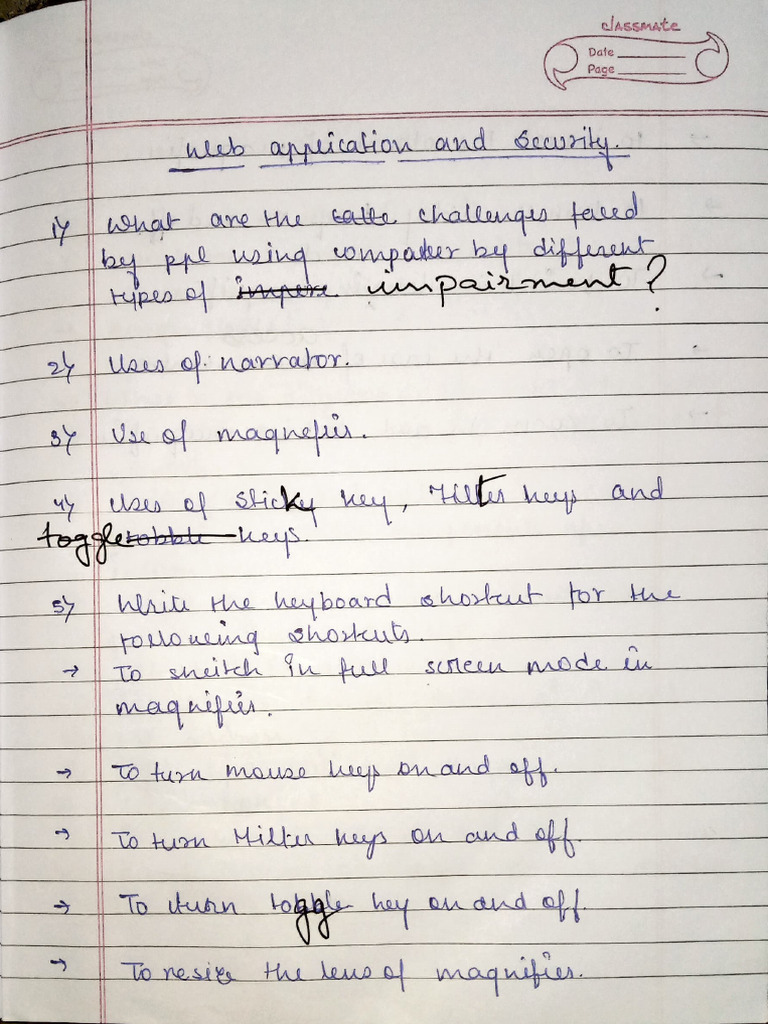 classmate
Date
Page
Web application and Security.
1) What are the challenges faced
by ppl using computer by different
types of impairment?
2) Uses of narrator.
3) Use of magnefier.
4) Uses of Sticky key, Filter keys and
toggle keys.
5) Write the keyboard shortcut for the
following shortcuts.
→ To switch in full screen mode in
magnifier.
→ To turn mouse keys on and off.
→ To turn Filter keys on and off.
→ To turn toggle key on and off.
→ To resize the lens of magnifier.